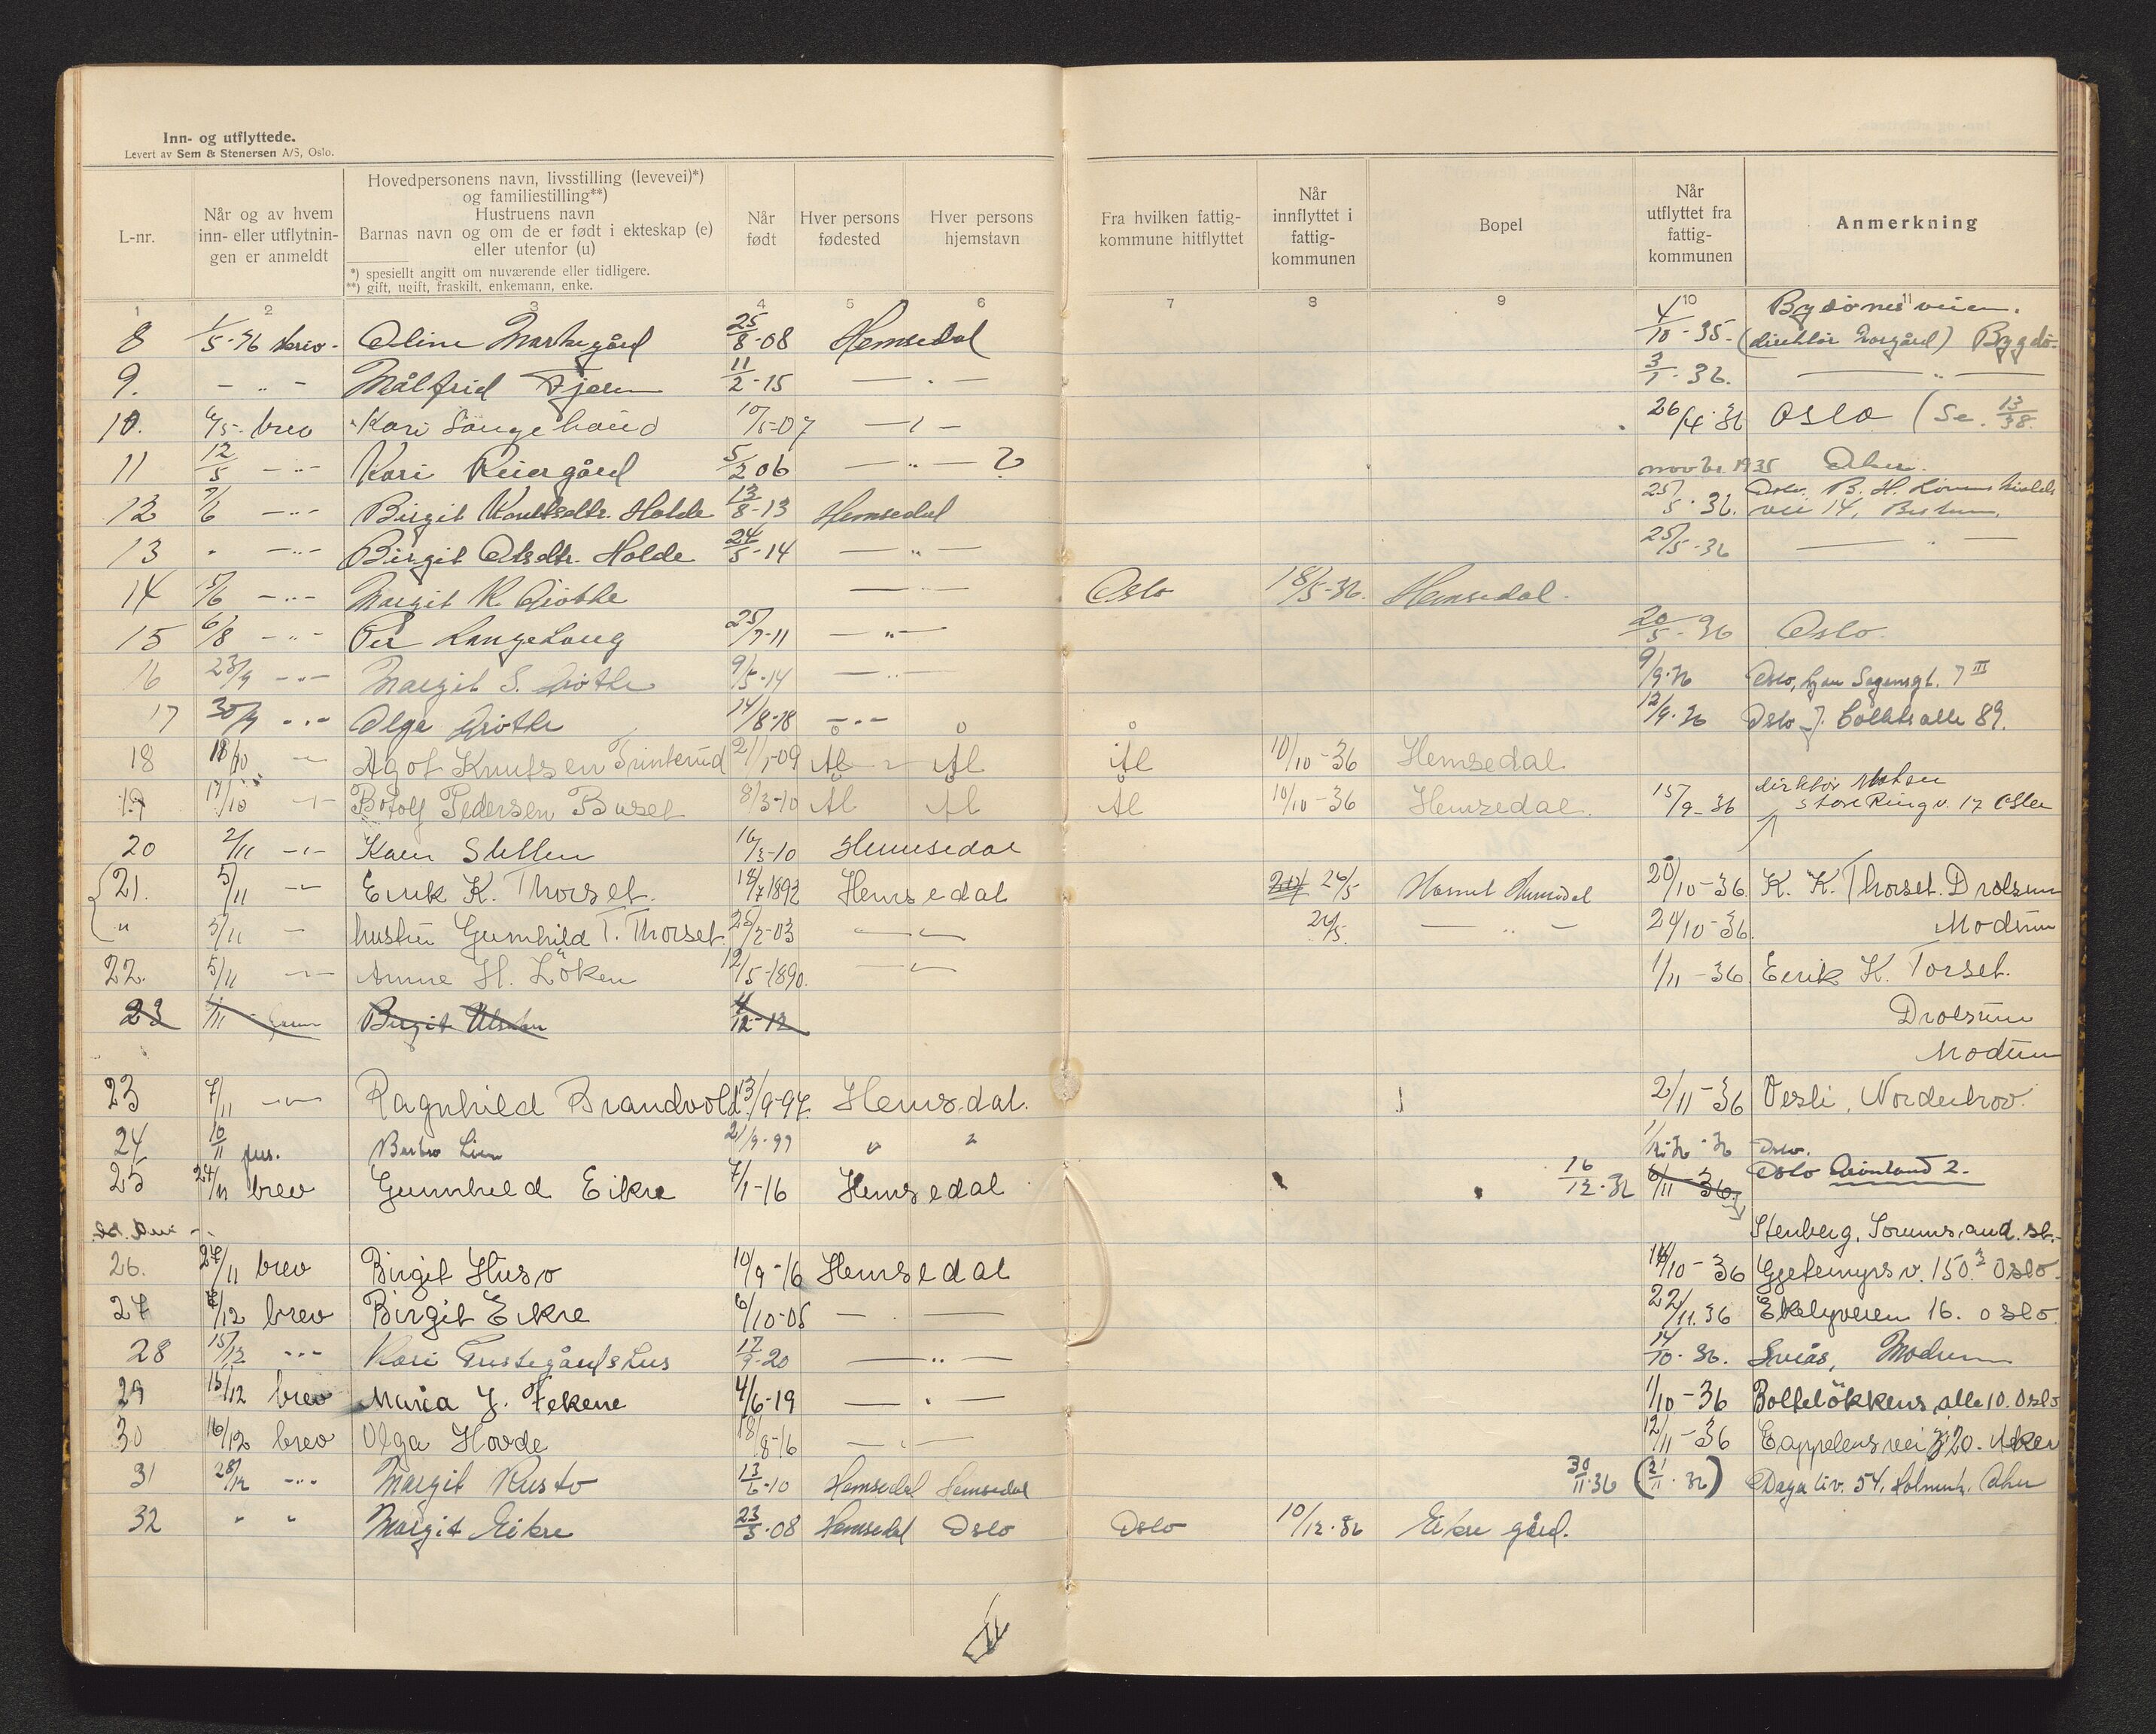 Inn- og utflyttede.
Levert av Sem & Stenersen A/S, Oslo.
L-nr.
Når og av hvem inn- eller utflytnin-gen er anmeldt
Hovedpersonens navn, livsstilling (levevei)*)
og familiestilling**)
Hustruens navn
Barnas navn og om de er født i ekteskap (e)
eller utenfor (u)
*) spesielt angitt om nuværende eller tidligere.
**) gift, ugift, fraskilt, enkemann, enke.
Når født
Hver persons fødested
Hver persons hjemstavn
Fra hvilken fattig-kommune hitflyttet
Når innflyttet i fattig-kommunen
Bopel
Når utflyttet fra fattig-kommunen
Anmerkning
1 2 3 4 5 6 7 8 9 10 11
Bygdönesveien.
8 1/5-36 skriv- Oline Markegård 25/8-08 Hemsedal 4/10-35. (direktör Norgård) Bygdö.
9. - " - Målfrid 11/2-15 — " — 3/1-36. — " —
10. brev Kari 10/5-07 — " — 26/4-36 Oslo (Se. 13/38.
11 12/5 - " - Kari Reiergård 5/2 06 — " — ? novbr. 1935 Aker.
12 - " - Birgit Holde 13/8-13 Hemsedal 25/5-36. Oslo. B. H.
vei 14,
13 - " - Birgit Olsdtr. Holde 24/5-14 — " — 25/5-36 — " —
14 5/6 - " - Margit K. Grøthe — " — Oslo 18/5-36. Hemsedal.
15 6/8 - " - Per Langehaug 25/7-11 — " — 20/5-36 Oslo.
16 23/9 - " - Margit S. Grøthe 9/5-14 — " — 9/9-36 Oslo, Sagensgt. 7 III
17 30/9 - " - Olga Grøthe 14/8-18 - " - 12/9-36 Oslo J. Colletsalle 89.
18 18/10 - " - Agot Knutsen Trinterud 21/1-09 Ål Ål Ål 10/10-36 Hemsedal
direktör
19 17/10 - " - Botolf Pedersen Buset 8/3-10 Ål Ål Ål 10/10-36 Hemsedal. 15/9-36 Store Ringv. 17 Oslo
20 2/11 - " - Karen 16/3-10 Hemsedal
21. 5/11 - " - Eirik K. Thorset. 18/7 1892 Hemsedal 26/5 Hemsedal 20/10-36. K. K. Thorset. Drolsum
" 5/11 - hustru Gunhild T. Thorset. 25/2-03 — " — 26/5. — " — 24/10-36. Modum
22. 5/11 - " - Anne H. Löken 12/5-1890. — " — 1/11-36. Eirik K. Torset.
23 Birgit 4/12-12 Drolsum
Modum
23 7/11 - " - Ragnhild Brandvold 13/9-94. Hemsdal. 2/11-36 Vesli, Norderhov.
24 10/11 pers. Lien 21/9-99 " " Oslo.
25 24/11 brev Gunhild Eikre 7/1-16 Hemsedal 16/12-36 6/11-36 Oslo Grönland 2.
Stenberg, Sörumsand. st.-
26. 24/11 brev Birgit Huso 10/9-16 Hemsedal 14/10-36 Gjetemyrsv. 150.3 Oslo.
27 /12 brev Birgit Eikre 6/10-05 — — 22/11.36 Ekelyveien 16. oslo.
28 15/12 - " - Kari 17/9-20 — " — 14/10-36. Modum
29 15/12 brev Maria J. Fekene 4/6-19 — " — 1/10-36 Bolteløkkens alle 10. Oslo
30 16/12 brev Olga Hovde 18/8-16 — " — 12/11-36 Cappelens vei 20. Aker
31 28/12 - " - Margit Rusto 13/6-10 Hemsedal Hemsedal 30/11-36 (21/11-36) Dagaliv. 54, Aker
32 " " Margit Eikre 23/3-08 Hemsedal Oslo Oslo 10/12-36 Eikre gård.